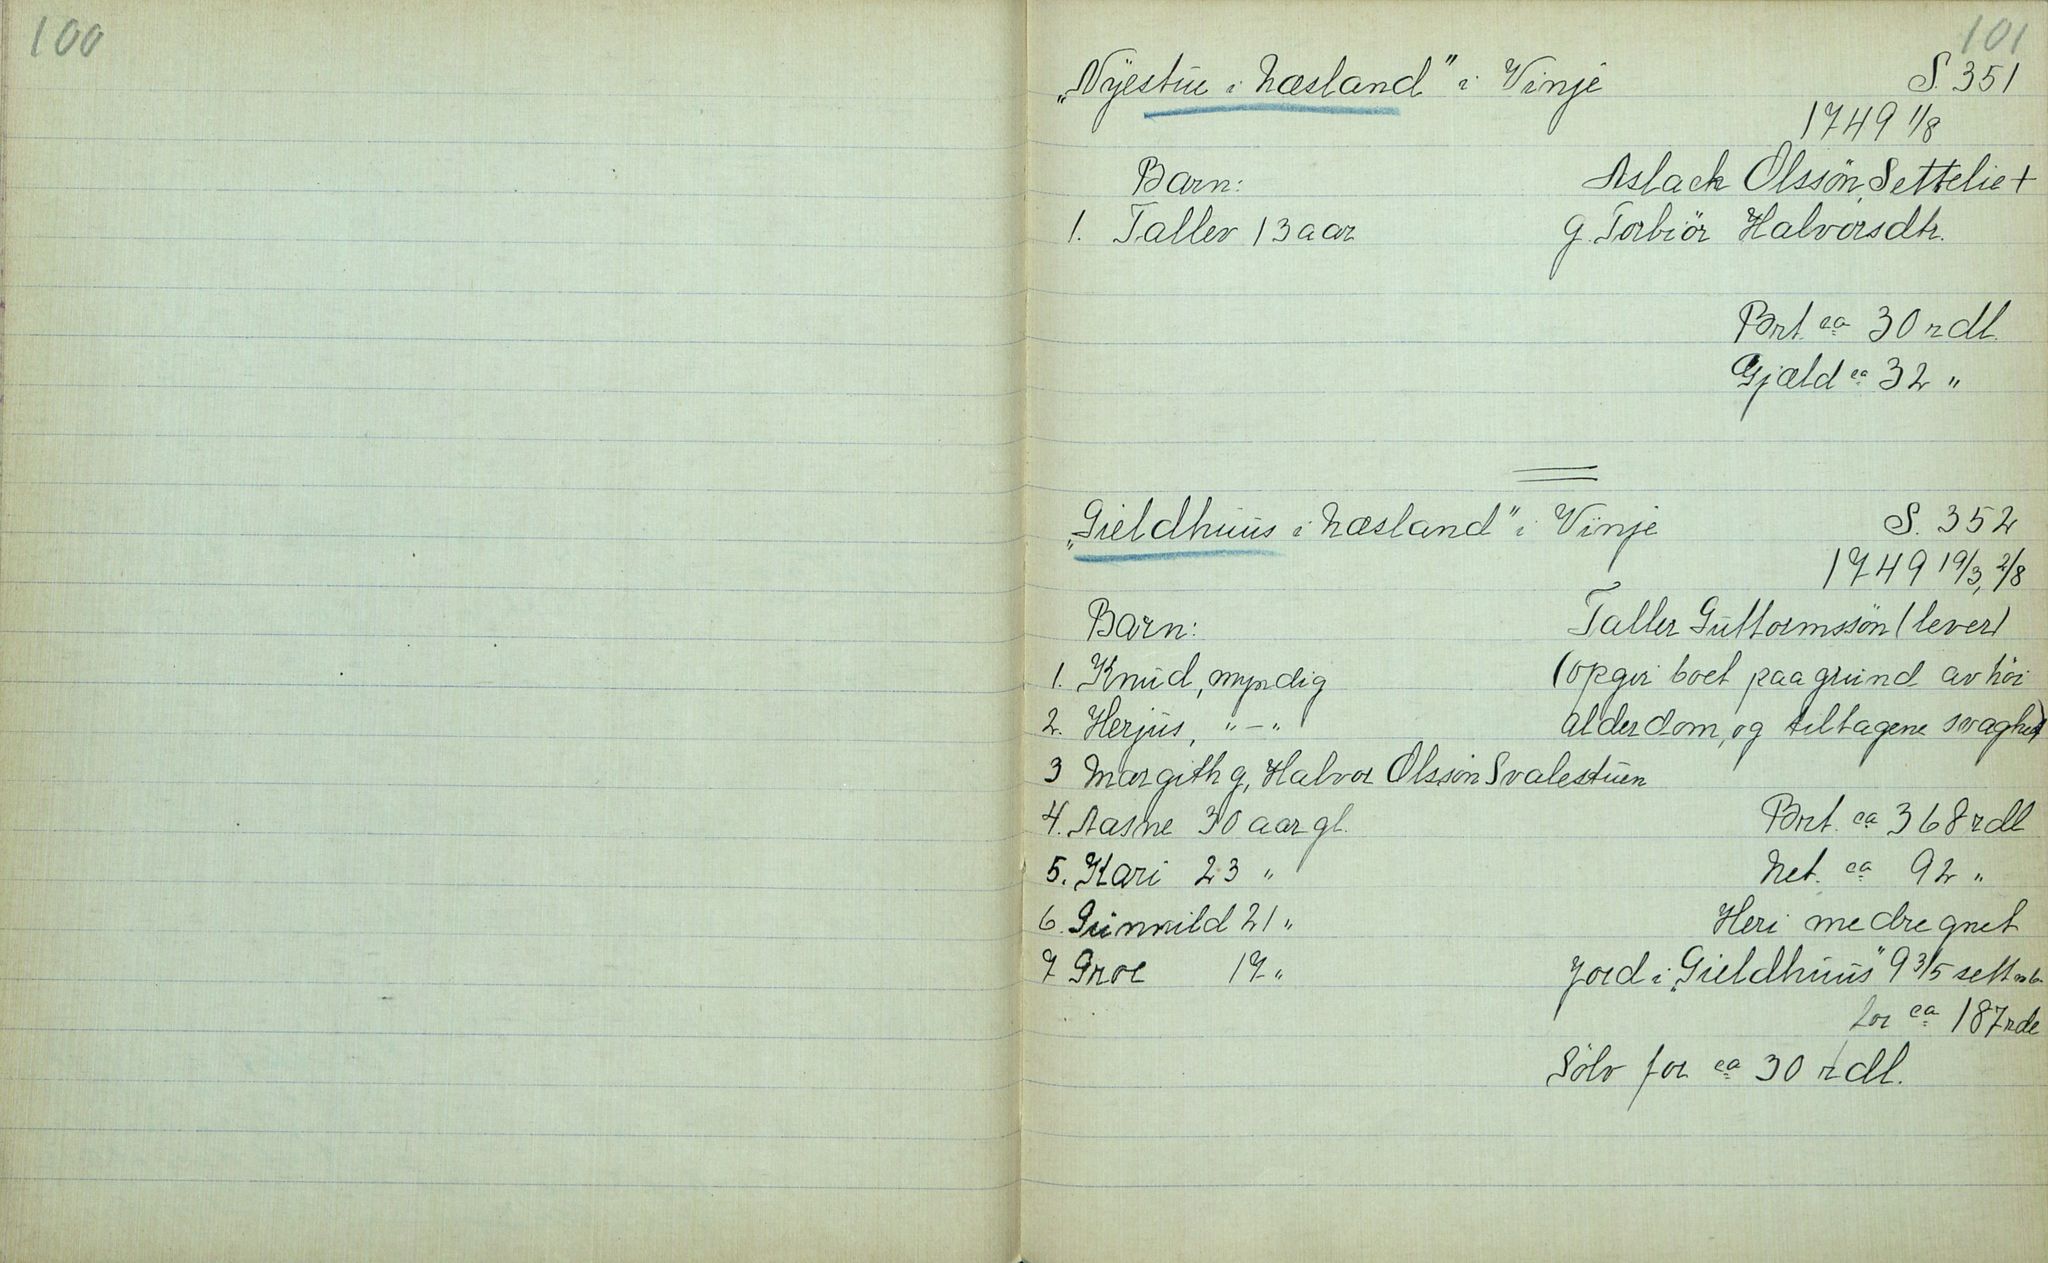 100
101
„Nÿestue i Næsland" i Vinje S. 351
1749 11/8
Barn: Aslack Olssön Settelie +
1. Tallev 13 aar g. Torbiör Halvorsdtr.
Brt. ca 30 rdl.
Gjæld ca 32 "
„Gieldhuus i Næsland" i Vinje S. 352
1749 19/3, 2/8
Barn: Tallev Guttormssön (lever)
1. Knud, myndig (opgir boet paa grund av höi
2. Herjus, "-" alderdom, og tiltagene svaghet)
3 Margith g, Halvor Olssön Svalestuen
4. Aasne 30 aar gl. Brt. ca 368 rdl
5. Kari 23 " Net. ca 92 "
6. Gunnild 21 " Heri medregnet
7 Groe 17 " Jord i „Gieldhuus" 9 3/5 sett
for ca 187 rdl
Sölv for ca 30 rdl.